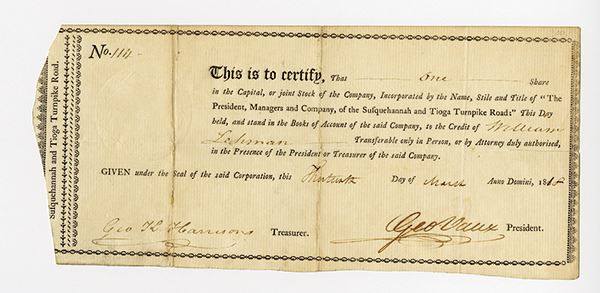 No. 114
This is to certify, That one Share
in the Capital, or joint Stock of the Company, Incorporated by the Name, Stile and Title of "The
President, Managers and Company, of the Susquehannah and Tioga Turnpike Road:" This Day
held, and stand in the Books of Account of the said Company, to the Credit of William
Lehman Transferable only in Person, or by Attorney duly authorised,
in the Presence of the President or Treasurer of the said Company.
GIVEN under the Seal of the said Corporation, this Day of March Anno Domini, 181
Geo Harrison Treasurer. Geo Vaux President.
Susquehannah and Tioga Turnpike Road.